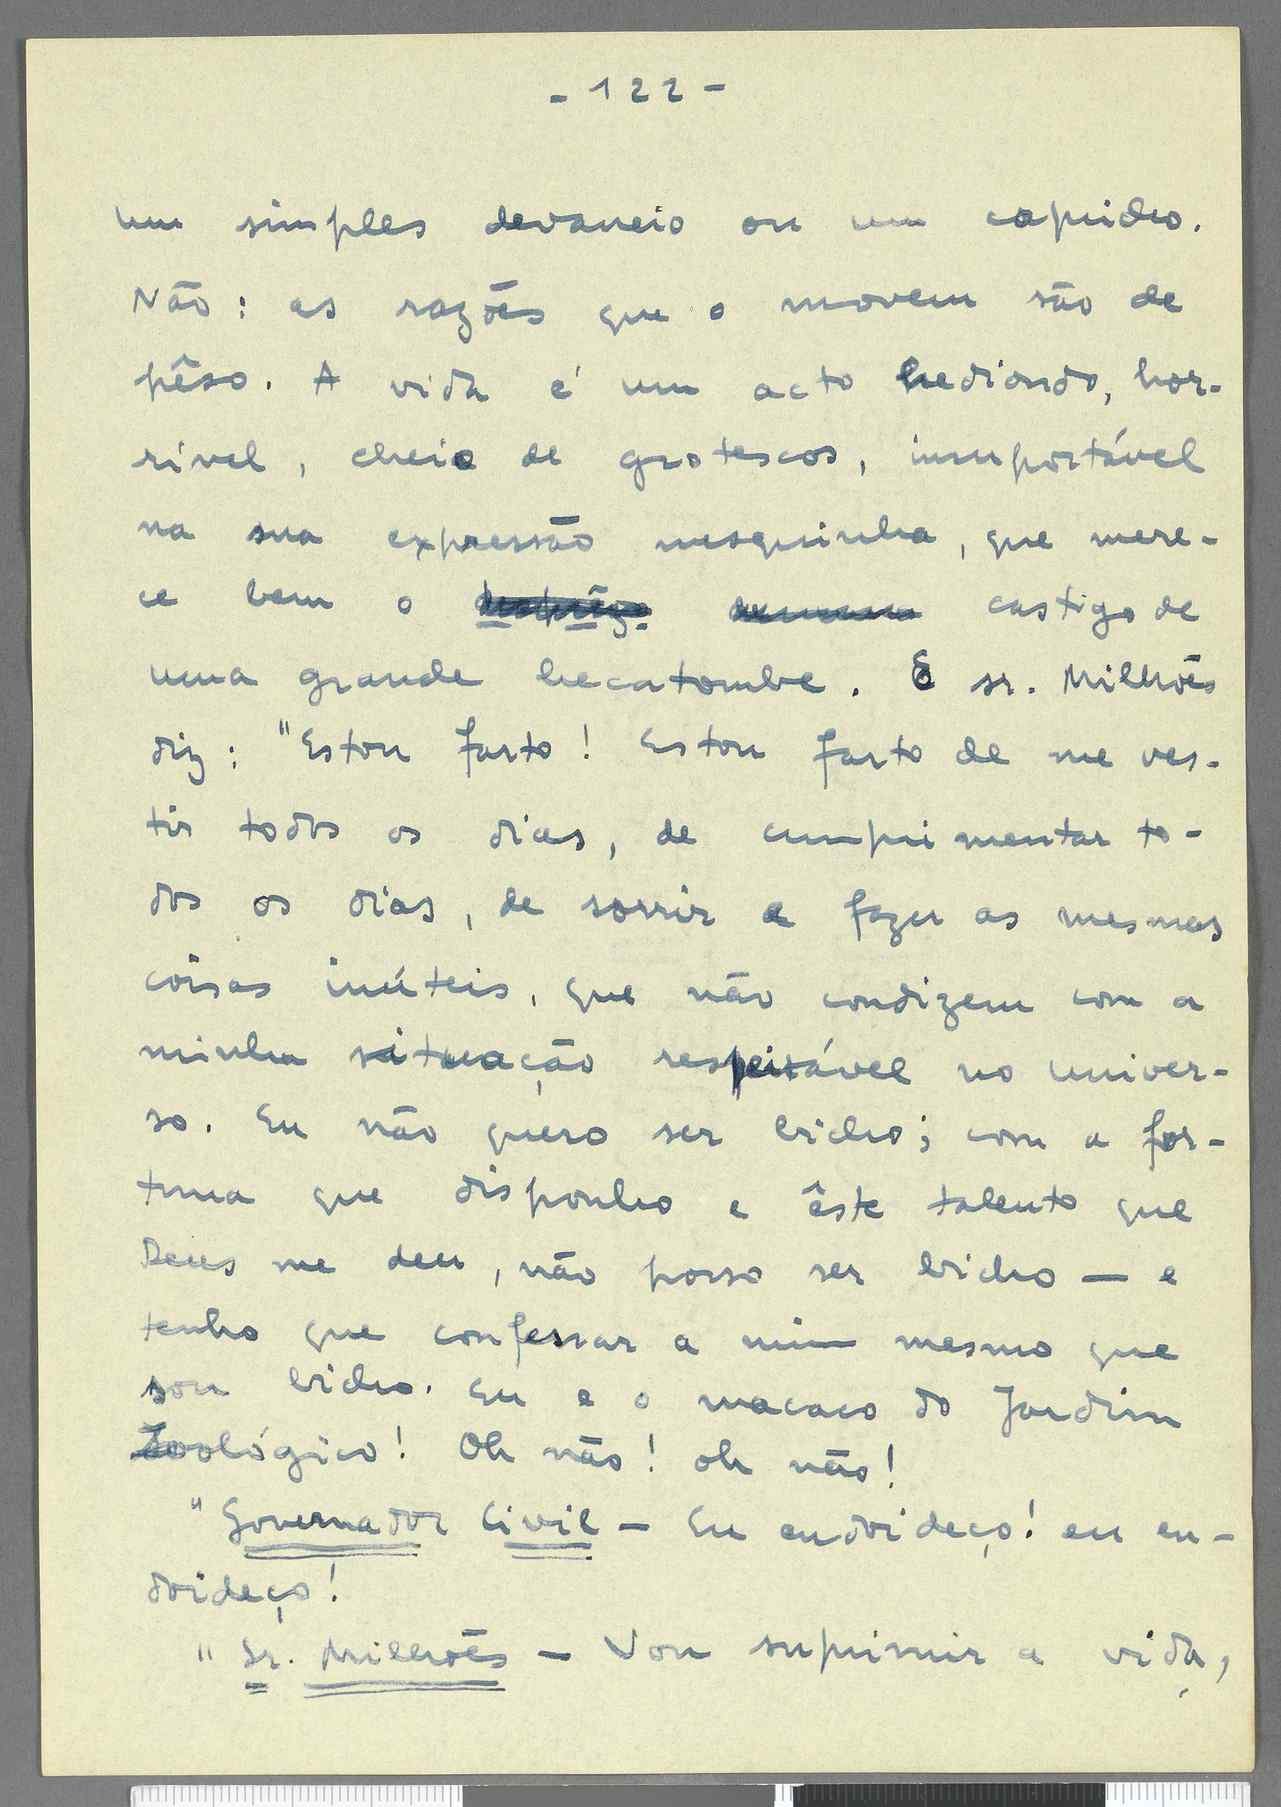 - 122 -
um simples devaneio ou um capricho.
Não: as razões que o movem são de
pêso. A vida é um acto hediondo, hor-
rível, cheio de grotescos, insuportável
na sua expressão mesquinha, que mere-
ce bem o castigo de
uma grande hecatombe. E sr. Milhões
diz: "Estou farto! Estou farto de me ves-
tir todos os dias, de cumprimentar to-
dos os dias, de sorrir e fazer as mesmas
coisas inúteis, que não condizem com a
minha situação respeitável no univer-
so. Eu não quero ser bicho; com a for-
tuna que disponho e êste talento que
Deus me deu, não posso ser bicho — e
tenho que confessar a mim mesmo que
sou bicho. Eu e o macaco do Jardim
Zoológico! Oh não! oh não!
"Governador Civil — Eu endoideço! eu en-
doideço!
"Sr. Milhões — Vou suprimir a vida,